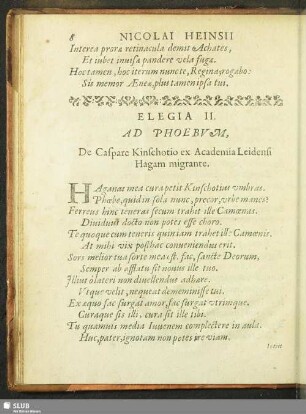 8 NICOLAI HEINSII
Interea proræ retinacula demit Achates,
Et jubet invisa pandere vela fuga.
Hoc tamen, hoc iterum nunc te, Regina, rogabo:
Sis memor Æneæ, plus tamen ipsa tui.
ELEGIA II.
AD PHOEBVM,
De Caspare Kinschotio ex Academia Leidensi
Hagam migrante.
HAganas mea cura petit Kinschotus vmbras.
Phœbe, quid in sola nunc, precor, vrbe manes?
Ferreus hinc teneras secum trahit ille Camœnas.
Dividuus docto non potes esse choro.
Te quoque cum teneris quoniam trahit ille Camœnis,
At mihi vix posthac conveniendus erit.
Sors melior tua sorte mea est. fac, sancte Deorum,
Semper ab affatu sit nonus ille tuo.
Illius olateri non divellendus adhære.
Vtque velit, nequeat dememinisse tui.
Ex æquo fac surgat amor, fac surgat vtrimque.
Curaque sis illi, cura sit ille tibi.
Tu quamvis media Iuvenem complectere in aula.
Huc, pater, ignotam non potes ire viam.
SLUB